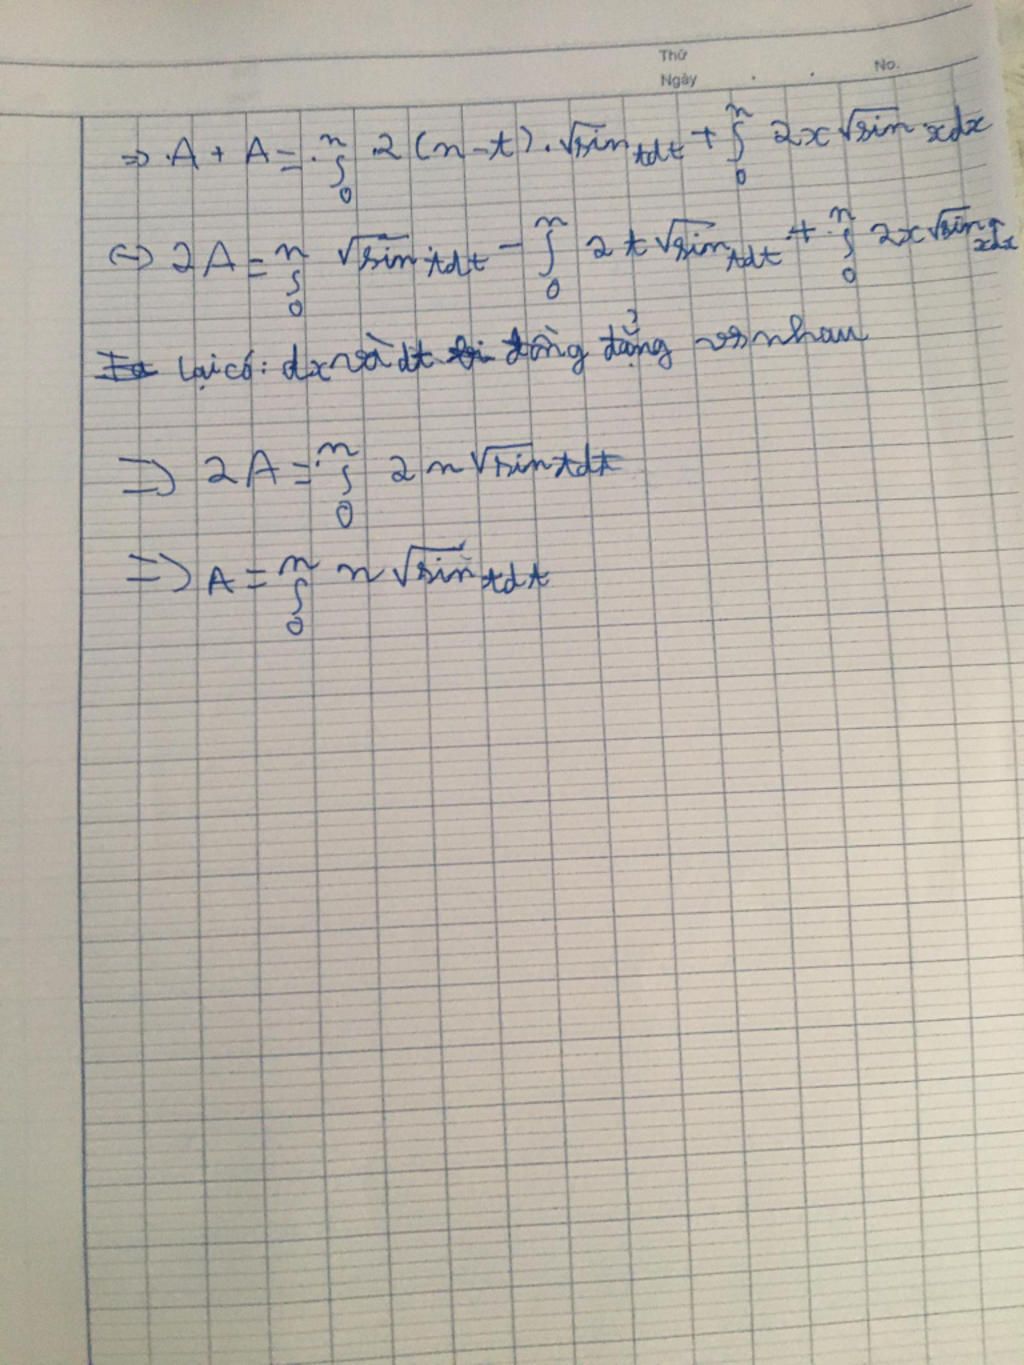 Thứ
Ngày . . No.
=> A + A = ∫₀ⁿ 2(n-t).√sin tdt + ∫₀ⁿ 2x √sin xdx
<=> 2A = ∫₀ⁿ √sin tdt - ∫₀ⁿ 2t √sin tdt + ∫₀ⁿ 2x √sin xdx
lại có: dx và dt đồng đẳng vs nhau
=> 2A = ∫₀ⁿ 2n √sin tdt
=> A = ∫₀ⁿ n √sin tdt